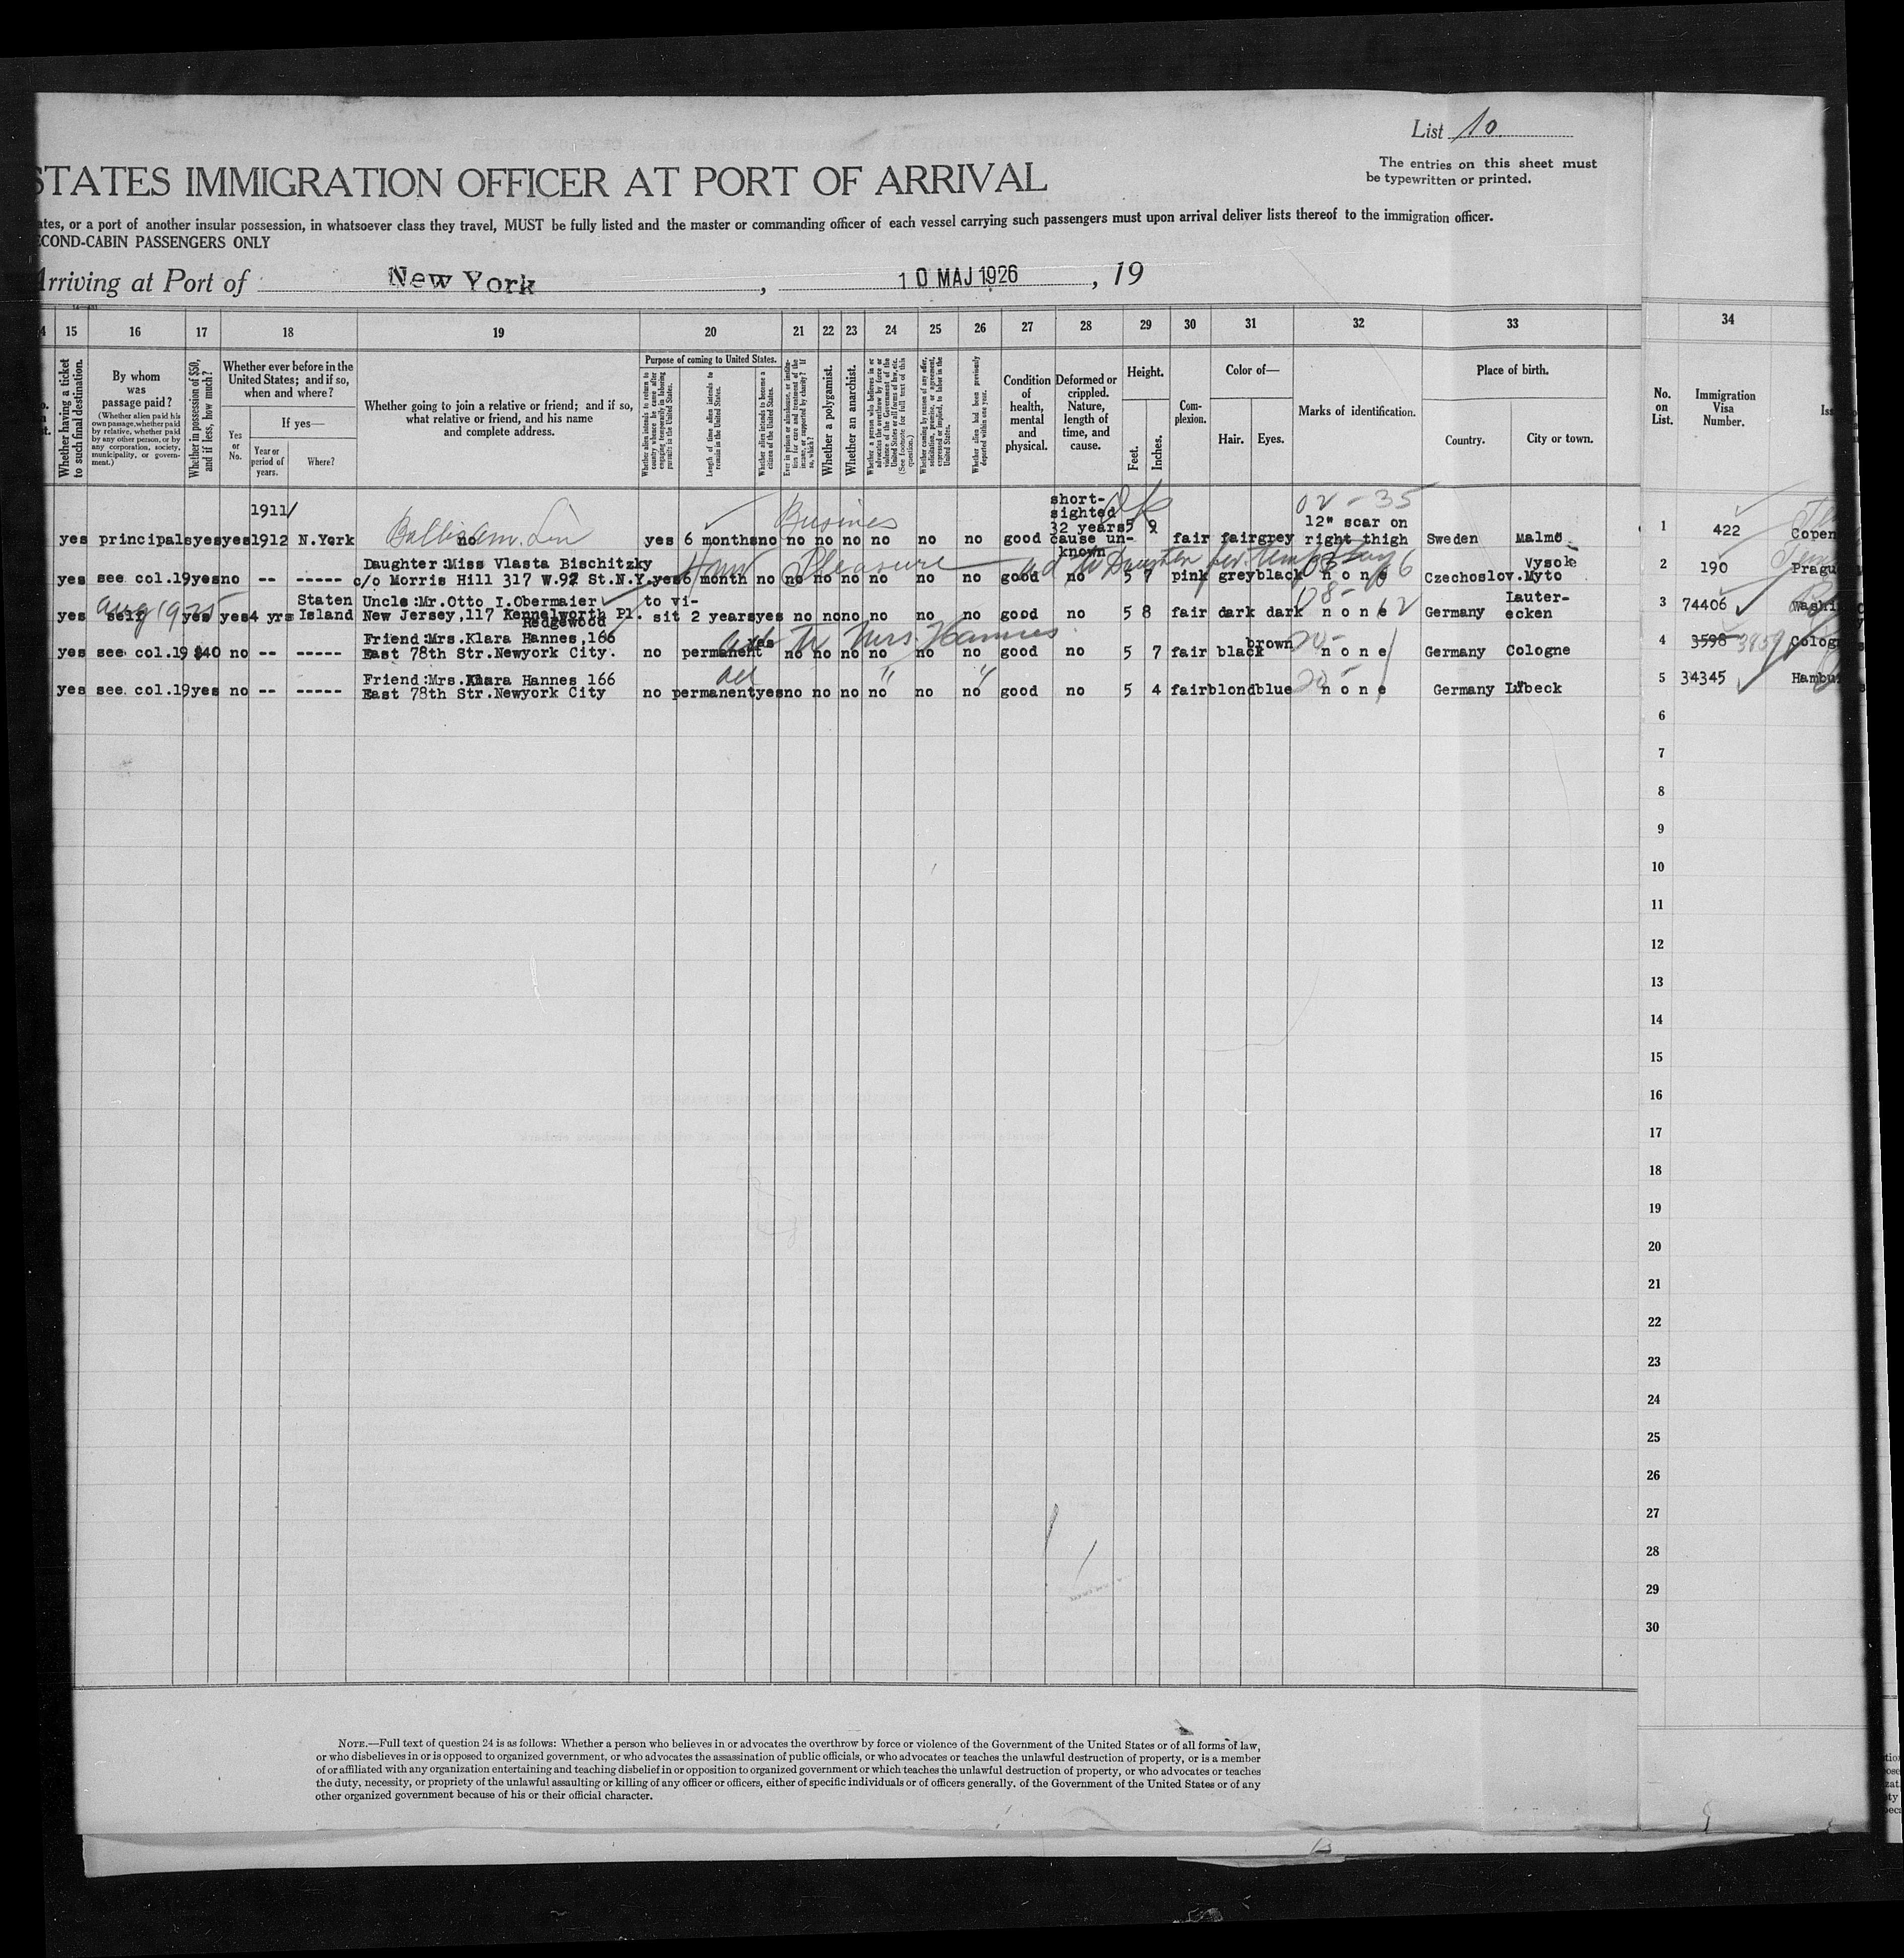 List 10
The entries on this sheet must
be typewritten or printed.
STATES IMMIGRATION OFFICER AT PORT OF ARRIVAL
ates, or a port of another insular possession, in whatsoever class they travel, MUST be fully listed and the master or commanding officer of each vessel carrying such passengers must upon arrival deliver lists thereof to the immigration officer.
ECOND-CABIN PASSENGERS ONLY
Arriving at Port of New York, 10 MAJ 1926, 19
15 16 17 18 19 20 21 22 23 24 25 26 27 28 29 30 31 32 33 34
Whether having a ticket to such final destination.
By whom was passage paid?
(Whether alien paid his own passage, whether paid by relative, whether paid by any other person, or by any corporation, society, municipality, or government.)
Whether in possession of $50, and if less, how much?
Whether ever before in the United States; and if so, when and where?
Yes or No.
If yes—
Year or period of years.
Where?
Whether going to join a relative or friend; and if so, what relative or friend, and his name and complete address.
Purpose of coming to United States.
Whether alien intends to return to country whence he came after engaging temporarily in laboring pursuits in the United States.
Length of time alien intends to remain in the United States.
Whether alien intends to become a citizen of the United States.
Ever in prison or almshouse, or institution for care and treatment of the insane, or supported by charity? If so, which?
Whether a polygamist.
Whether an anarchist.
Whether a person who believes in or advocates the overthrow by force or violence of the Government of the United States or all forms of law, etc. (See footnote for full text of this question.)
Whether coming by reason of any offer, solicitation, promise, or agreement, expressed or implied, to labor in the United States.
Whether alien had been previously deported within one year.
Condition of health, mental and physical.
Deformed or crippled. Nature, length of time, and cause.
Height.
Feet.
Inches.
Complexion.
Color of—
Hair.
Eyes.
Marks of identification.
Place of birth.
Country.
City or town.
No. on List.
Immigration Visa Number.
Iss
Busines
02-35
yes principals yes yes 1911/1912 N.York no yes 6 months no no no no no no no good short-sighted 32 years cause unknown 5 9 fair fair grey 12" scar on right thigh Sweden Malmö 1 422 Copen
Pleasure
yes see col.19 yes no -- ----- Daughter:Miss Vlasta Bischitzky
c/o Morris Hill 317 W.92 St.N.Y. yes 6 month no no no no no no no good no 5 7 pink grey black none Czechoslov. Vysoké Myto 2 190 Pragu
Aug 1925
yes self yes yes 4 yrs Staten Island Uncle:Mr.Otto I.Obermaier
New Jersey,117 Kennelworth Pl. Redgewood to visit 2 years yes no no no no no no good no 5 8 fair dark dark none Germany Lauterecken 3 74406 Washi
Mrs. Hannes
yes see col.19 $40 no -- ----- Friend:Mrs.Klara Hannes,166
East 78th Str.Newyork City. no permanent yes no no no no no no good no 5 7 fair black brown none Germany Cologne 4 3598 3859 Cologn
yes see col.19 yes no -- ----- Friend:Mrs.Klara Hannes 166
East 78th Str.Newyork City no permanent yes no no no no no no good no 5 4 fair blond blue none Germany Lübeck 5 34345 Hambu
6
7
8
9
10
11
12
13
14
15
16
17
18
19
20
21
22
23
24
25
26
27
28
29
30
NOTE.—Full text of question 24 is as follows: Whether a person who believes in or advocates the overthrow by force or violence of the Government of the United States or of all forms of law,
or who disbelieves in or is opposed to organized government, or who advocates the assassination of public officials, or who advocates or teaches the unlawful destruction of property, or is a member
of or affiliated with any organization entertaining and teaching disbelief in or opposition to organized government or which teaches the unlawful destruction of property, or who advocates or teaches
the duty, necessity, or propriety of the unlawful assaulting or killing of any officer or officers, either of specific individuals or of officers generally. of the Government of the United States or of any
other organized government because of his or their official character.